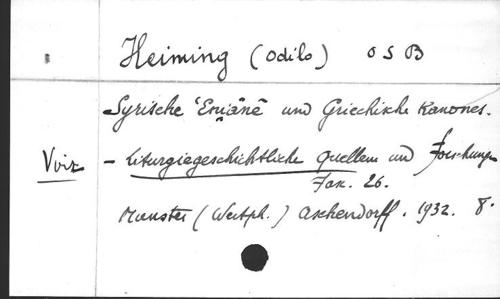 Heiming (Odilo) O S B
Syrische ʿEniānē und Griechische Kanones.
Voir - Liturgiegeschichtliche Quellen und Forschungen
Fax. 26.
Munster (Westph.) Aschendorff. 1932. 8°